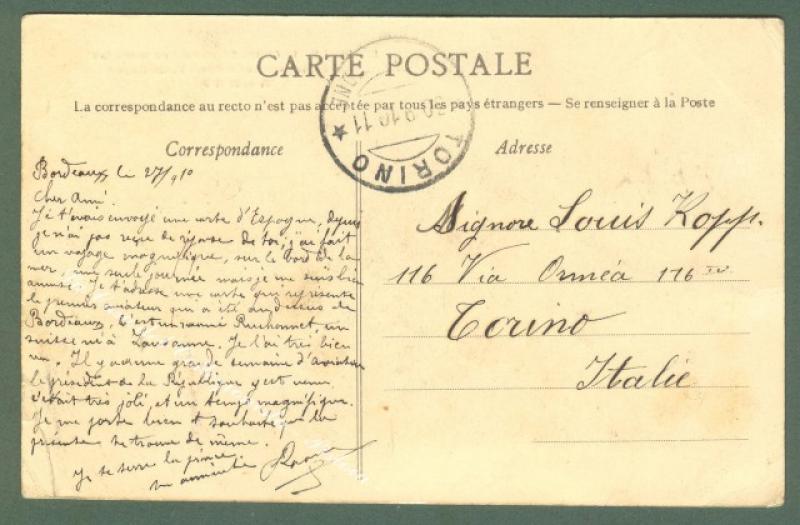 CARTE POSTALE
La correspondance au recto n'est pas acceptée par tous les pays étrangers — Se renseigner à la Poste
Correspondance
Adresse
TORINO
Bordeaux le 27/9 10
Cher Ami.
Je t'avais envoyé une carte d'Espagne, depuis
je n'ai pas reçu de réponse de toi, j'ai fait
un voyage magnifique, sur le bord de la
mer, une seule journée mais je me suis bien
amusé. Je t'adresse une carte qui représente
le premier aviateur qui a été au dessus de
Bordeaux, C'est un nommé Ruchonnet, un
suisse né à Lausanne. Je l'ai très bien
vu. Il y a eu une grande semaine d'aviation
le président de la République y est venu
c'était très joli, et un temps magnifique.
Je me porte bien et souhaite que la
présente te trouve de même.
Je te serre la pince
en amitié
Signore Louis Kopp.
116 Via Orméa 116
Torino
Italie